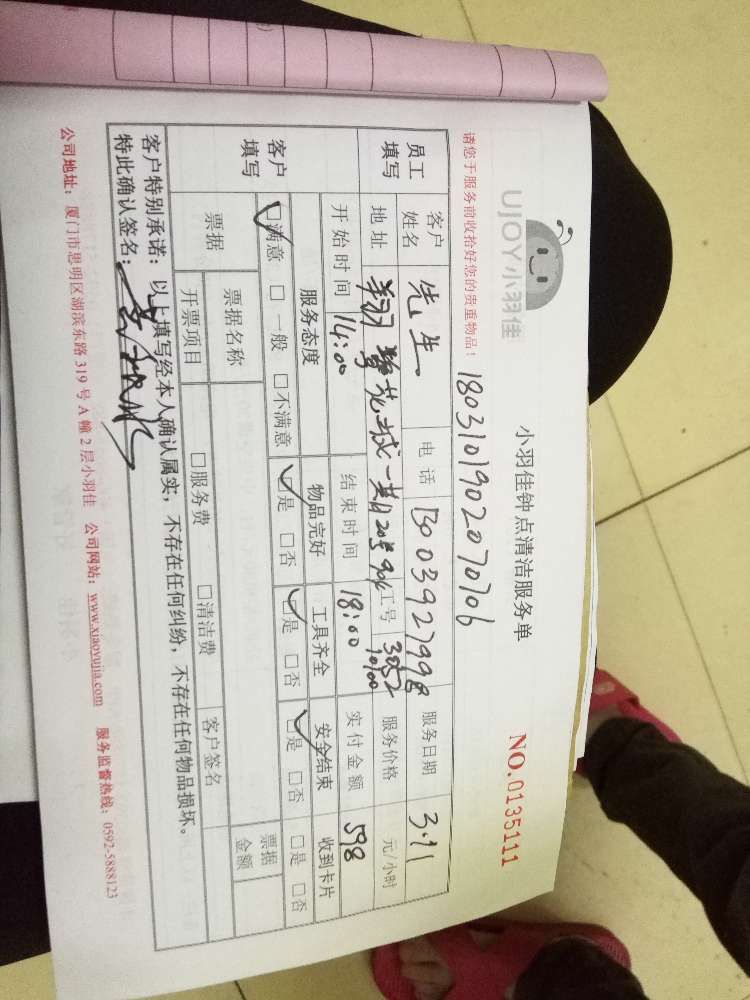 UJOY小羽佳
小羽佳钟点清洁服务单
NO.0135111
180310190207070706
请您于服务前收拾好您的贵重物品！
员工填写 客户姓名 先生 电话 13003927998 服务日期 3.11
地址 翔鹭花城一期 205号 904 工号 3052 10100 服务价格 元/小时
开始时间 14:00 结束时间 18:00 实付金额 598
客户填写 服务态度 物品完好 工具齐全 安全结束 收到卡片
☑满意 □一般 □不满意 ☑是 □否 ☑是 □否 ☑是 □否 □是 □否
票据 票据名称 票据金额
开票项目 □服务费 □清洁费 客户签名
客户特别承诺：以上填写经本人确认属实，不存在任何纠纷，不存在任何物品损坏。
特此确认签名：
公司地址：厦门市思明区湖滨东路 319 号 A 幢 2 层小羽佳 公司网站：www.xiaoyujia.com 服务监督热线：0592-5888123